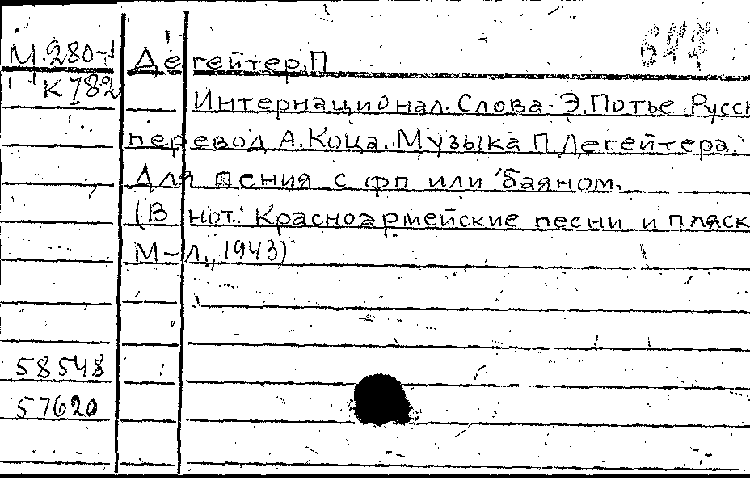 644
М.280-I Дегейтер П
К 782 Интернационал. Слова Э. Потье. Русск
перевод А. Коца. Музыка П. Дегейтера.
Для пения с фп или баяном.
(В нот: Красноармейские песни и пляск
М-Л., 1943)
58548
57620